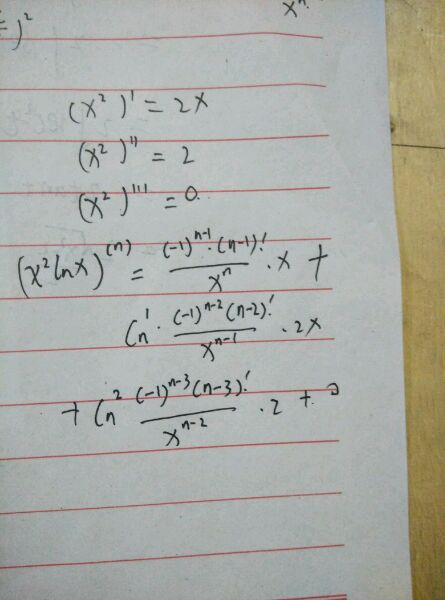 )²
xⁿ
(x²)' = 2x
(x²)'' = 2
(x²)''' = 0
(x² ln x)⁽ⁿ⁾ = (-1)ⁿ⁻¹·(n-1)! / xⁿ · x +
Cn¹ · (-1)ⁿ⁻²(n-2)! / xⁿ⁻¹ · 2x
+ Cn² (-1)ⁿ⁻³(n-3)! / xⁿ⁻² · 2 + 0